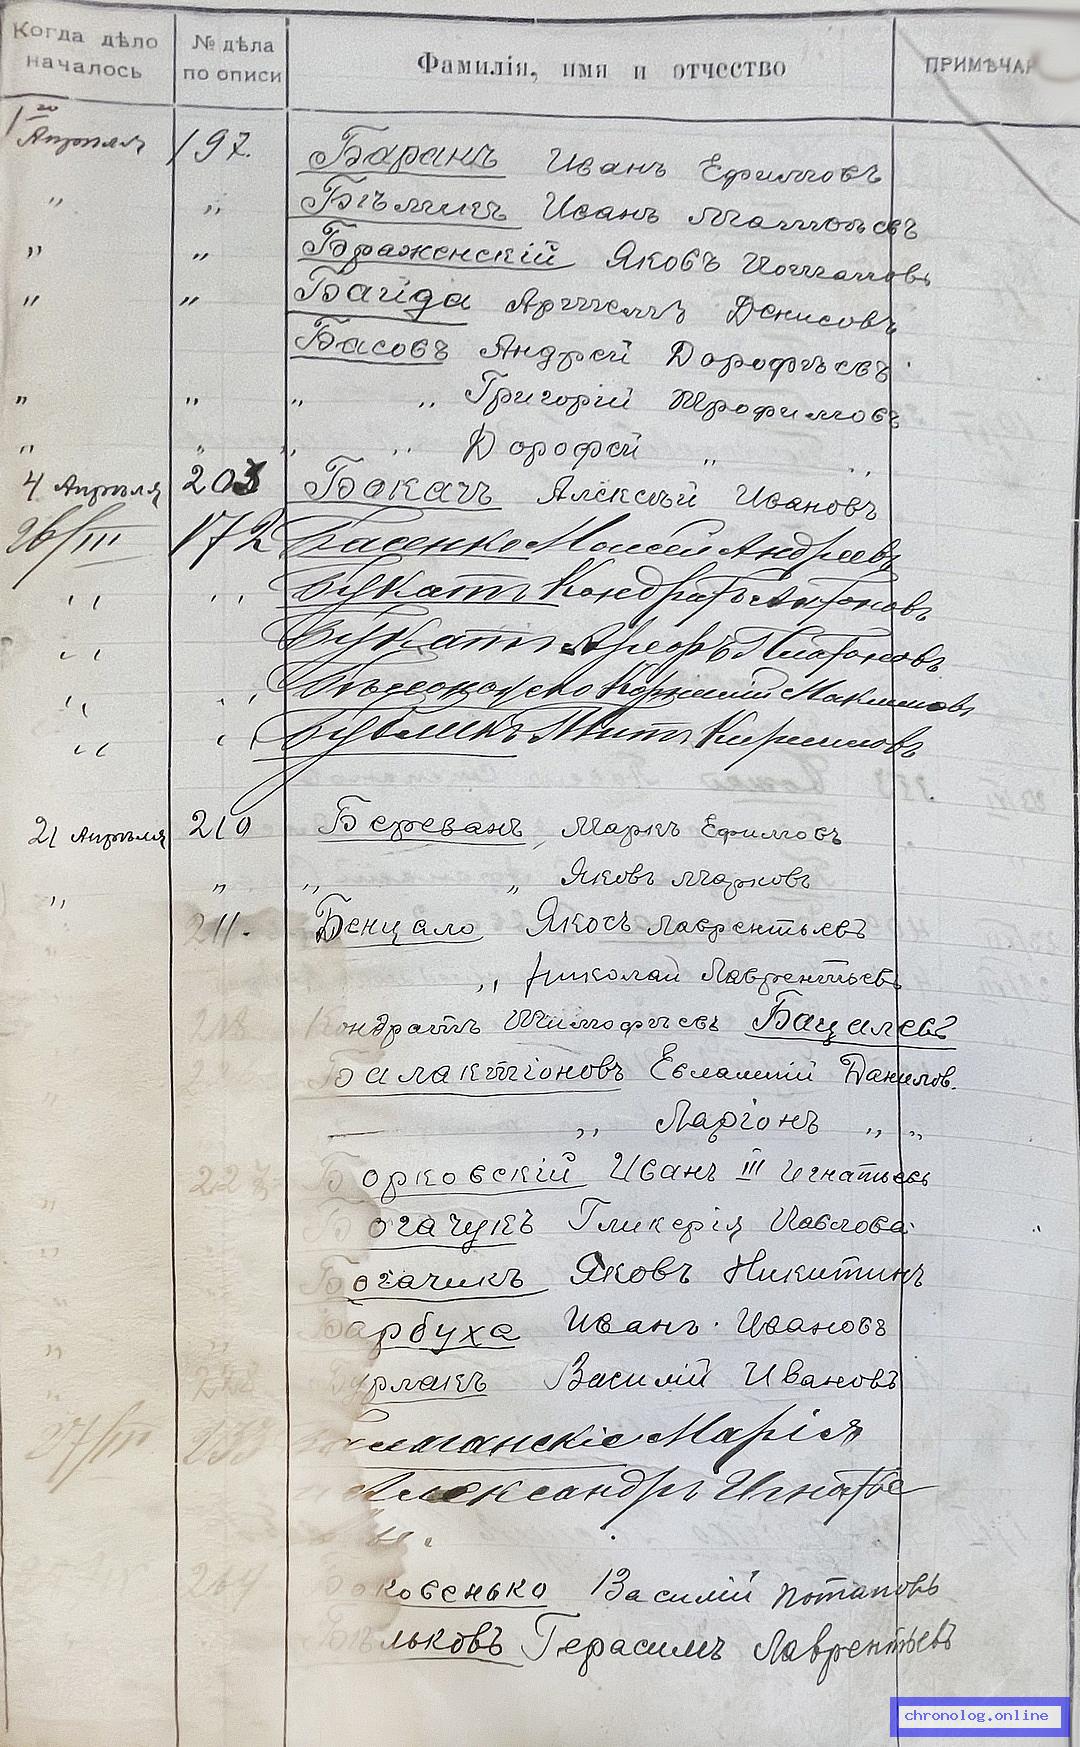 Когда дѣло началось № дѣла по описи Фамилія, имя и отчество ПРИМѢЧА
1го Апрѣля 197. Баранъ Иванъ Ефимовъ
" " Бѣликъ Иванъ
" " Браженскій Яковъ
" " Денисовъ
Басовъ Андрей Дорофѣевъ
" " " " Григорій Трофимовъ
" " " " Дорофей " "
4 Апрѣля 203 Бокачъ Алексѣй Ивановъ
26/III 172 Басенко Моисей Андреевъ
" " Букатъ Кондратъ Антоновъ
" Букатъ Платоновъ
" " Корнилій Максимовъ
" " Бубликъ Титъ Кириловъ
21 Апрѣля 210 Береванъ Маркъ Ефимовъ
" " " " Яковъ Марковъ
211. Бенцало Яковъ Лаврентьевъ
" Николай Лаврентьевъ
Кондратъ Тимофѣевъ Бацалевъ
Балактіоновъ Евлампій Данилов.
— " Ларіонъ " "
" 227 Борковскій Иванъ III Игнатьевъ
Богачукъ Гликерія Павлова
Богачикъ Яковъ Никитинъ
Барбуха Иванъ Ивановъ
Бурлакъ Василій Ивановъ
27/III 233 Марія
Александръ Игнатье
вы.
204 Василій Потаповъ
льковъ Герасимъ Лаврентьевъ
chronolog.online